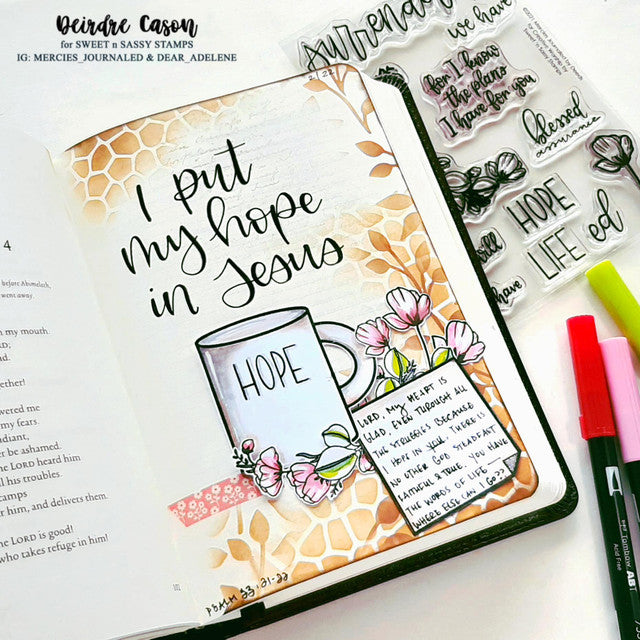 Deirdre Cason
for SWEET n SASSY STAMPS
IG: MERCIES_JOURNALED & DEAR_ADELENE
2.22
I put
my hope
in Jesus
HOPE
LORD, MY HEART IS
GLAD, EVEN THROUGH ALL
THE STRUGGLES BECAUSE
I HOPE IN YOU. THERE IS
NO OTHER GOD STEADFAST
FAITHFUL & TRUE. YOU HAVE
THE WORDS OF LIFE
WHERE ELSE CAN I GO??
PSALM 33:21-22
4
before Abimelech,
went away.
my mouth.
LORD;
ad.
ether!
wered me
my fears.
adiant,
er be ashamed.
he LORD heard him
l his troubles.
camps
r him, and delivers them.
e LORD is good!
who takes refuge in him!
surrender
we have
for I know
the plans
I have for you
blessed
assurance
HOPE
LIFE
ed
will
have
Tombow ABT
Acid Free